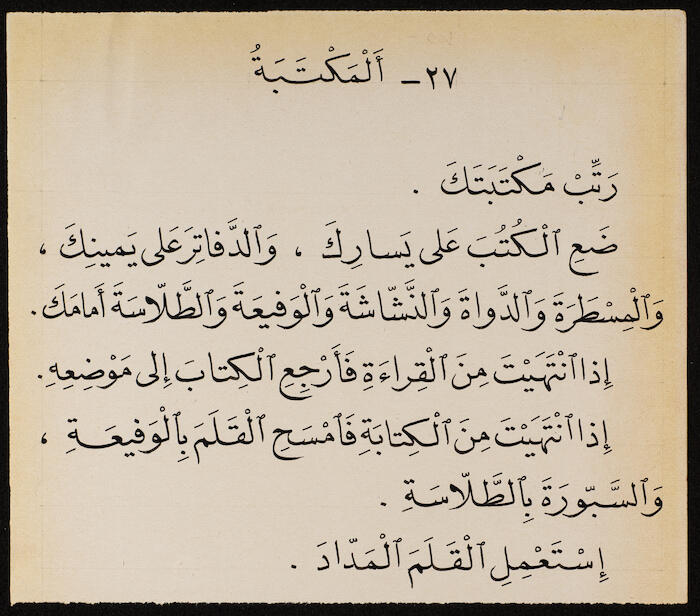 ٢٧ – أَلْمَكْتَبَةُ
رَتِّبْ مَكْتَبَتَكَ .
ضَعِ ٱلْكُتُبَ عَلى يَسارِكَ ، وَٱلدَّفاتِرَ عَلى يَمينِكَ ،
وَٱلْمِسْطَرَةَ وَٱلدَّواةَ وَٱلنَّشّاشَةَ وَٱلْوَفيعَةَ وَٱلطَّلّاسَةَ أَمامَكَ .
إِذا ٱنْتَهَيْتَ مِنَ ٱلْقِراءَةِ فَأَرْجِعِ ٱلْكِتابَ إِلى مَوْضِعِهِ .
إِذا ٱنْتَهَيْتَ مِنَ ٱلْكِتابَةِ فَٱمْسَحِ ٱلْقَلَمَ بِٱلْوَفيعَةِ ،
وَٱلسَّبّورَةَ بِٱلطَّلّاسَةِ .
إِسْتَعْمِلِ ٱلْقَلَمَ ٱلْمَدّادَ .